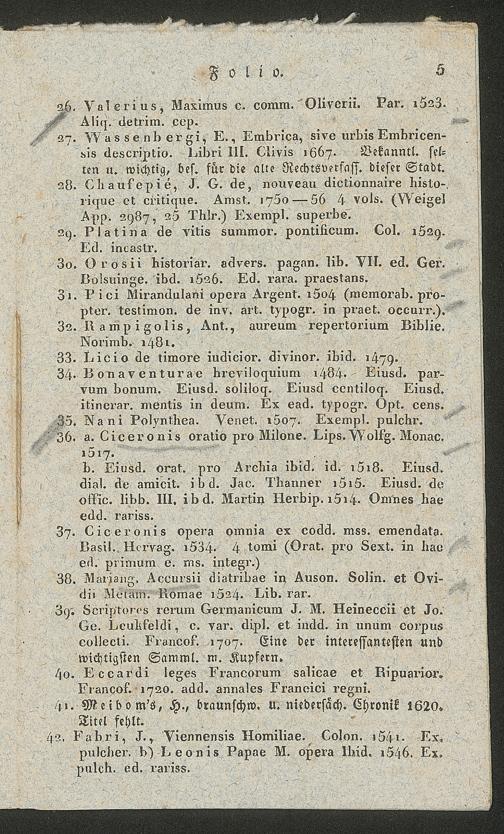 Folio. 5
26. Valerius, Maximus c. comm. Oliverii. Par. 1523.
Aliq. detrim. cep.
27. Wassenbergi, E., Embrica, sive urbis Embricen-
sis descriptio. Libri III. Clivis 1667. Bekanntl. sel-
ten u. wichtig, bes. für die alte Rechtsverfass. dieser Stadt.
28. Chaufepié, J. G. de, nouveau dictionnaire histo-
rique et critique. Amst. 1750—56 4 vols. (Weigel
App. 2987, 25 Thlr.) Exempl. superbe.
29. Platina de vitis summor. pontificum. Col. 1529.
Ed. incastr.
30. Orosii historiar. advers. pagan. lib. VII. ed. Ger.
Bolsuinge. ibd. 1526. Ed. rara. praestans.
31. Pici Mirandulani opera Argent. 1504 (memorab. pro-
pter. testimon. de inv. art. typogr. in praet. occurr.).
32. Rampigolis, Ant., aureum repertorium Biblie.
Norimb. 1481.
33. Licio de timore iudicior. divinor. ibid. 1479.
34. Bonaventurae breviloquium 1484. Eiusd. par-
vum bonum. Eiusd. soliloq. Eiusd centiloq. Eiusd.
itinerar. mentis in deum. Ex ead. typogr. Opt. cens.
35. Nani Polynthea. Venet. 1507. Exempl. pulchr.
36. a. Ciceronis oratio pro Milone. Lips. Wolfg. Monac.
1517.
b. Eiusd. orat. pro Archia ibid. id. 1518. Eiusd.
dial. de amicit. ibd. Jac. Thanner 1515. Eiusd. de
offic. libb. III. ibd. Martin Herbip. 1514. Omnes hae
edd. rariss.
37. Ciceronis opera omnia ex codd. mss. emendata.
Basil. Hervag. 1534. 4 tomi (Orat. pro Sext. in hac
ed. primum e. ms. integr.)
38. Mariang. Accursii diatribae in Auson. Solin. et Ovi-
dii Metam. Romae 1524. Lib. rar.
39. Scriptores rerum Germanicum J. M. Heineccii et Jo.
Ge. Leukfeldi, c. var. dipl. et indd. in unum corpus
collecti. Francof. 1707. Eine der interessantesten und
wichtigsten Samml. m. Kupfern.
40. Eccardi leges Francorum salicae et Ripuarior.
Francof. 1720. add. annales Francici regni.
41. Meibom's, H., braunschw. u. niedersäch. Chronik 1620.
Titel fehlt.
42. Fabri, J., Viennensis Homiliae. Colon. 1541. Ex.
pulcher. b) Leonis Papae M. opera Ibid. 1546. Ex.
pulch. ed. rariss.